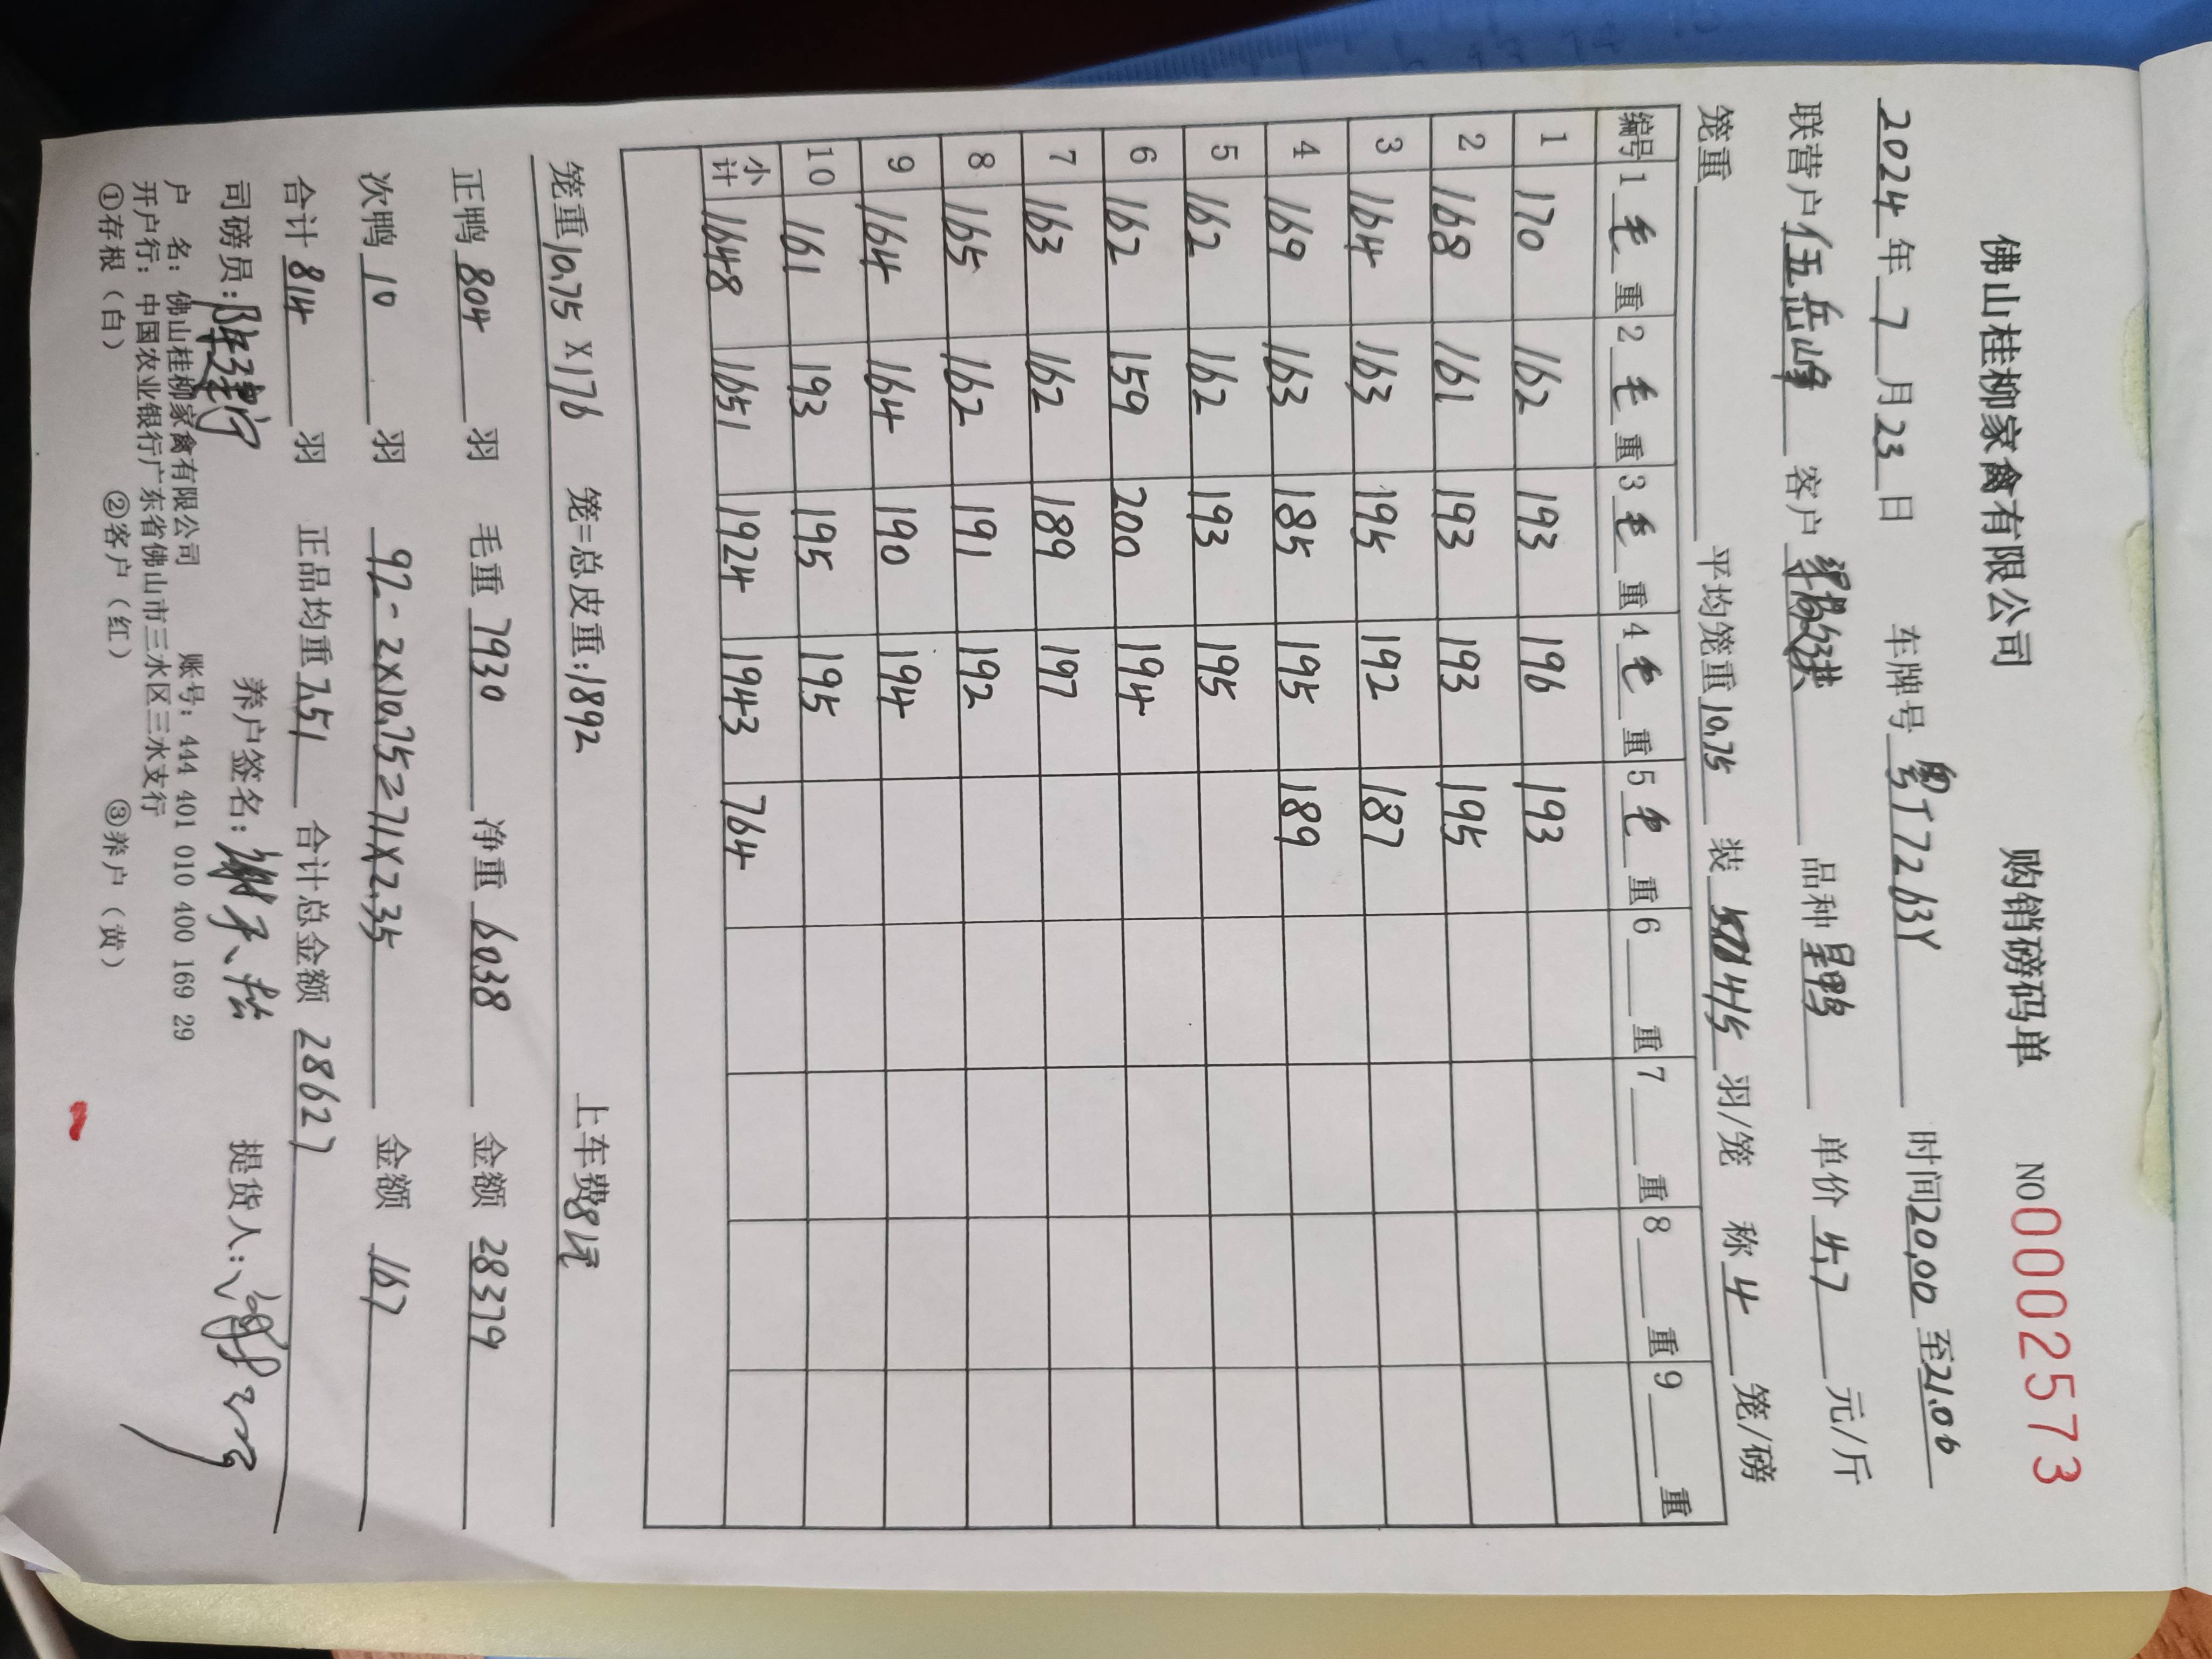 佛山桂柳家禽有限公司 购销磅码单 NO 00002573
2024年7月23日 车牌号 粤T7263Y 时间20.00至21.00
联营户 伍岳峰 客户 品种 呈鸭 单价 4.7 元/斤
笼重 平均笼重 10.75 装 4/5 羽/笼 称 4 笼/磅
编号 1毛重 2毛重 3毛重 4毛重 5毛重 6 重 7 重 8 重 9 重
1 170 162 193 196 193
2 168 161 193 193 195
3 164 163 195 192 187
4 169 163 185 195 189
5 162 162 193 195
6 162 159 200 194
7 163 162 189 197
8 165 162 191 192
9 164 164 190 194
10 161 193 195 195
小计 1648 1651 1924 1943 764
笼重 10.75 X176 笼=总皮重:1892 上车费81元
正鸭 804 羽 毛重 7930 净重 6038 金额 28379
次鸭 10 羽 92-2X10.75=71X2.35 金额 167
合计 814 羽 正品均重 7.51 合计总金额 28627
司磅员: 养户签名: 提货人:
户 名:佛山桂柳家禽有限公司 账号:444 401 010 400 169 29
开户行:中国农业银行广东省佛山市三水区三水支行
①存根(白) ②客户(红) ③养户(黄)